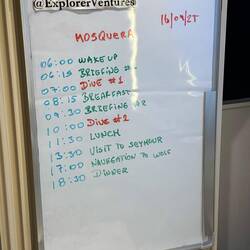 @ExplorerVentures
16/09/25
MOSQUERA
06:00 WAKE UP
06:15 BRIEFING #1
07:00 DIVE #1
08:15 BREAKFAST
09:30 BRIEFING #2
10:00 DIVE #2
11:30 LUNCH
13:30 VISIT TO SEYMOUR
17:00 NAVIGATION TO WOLF
18:30 DINNER